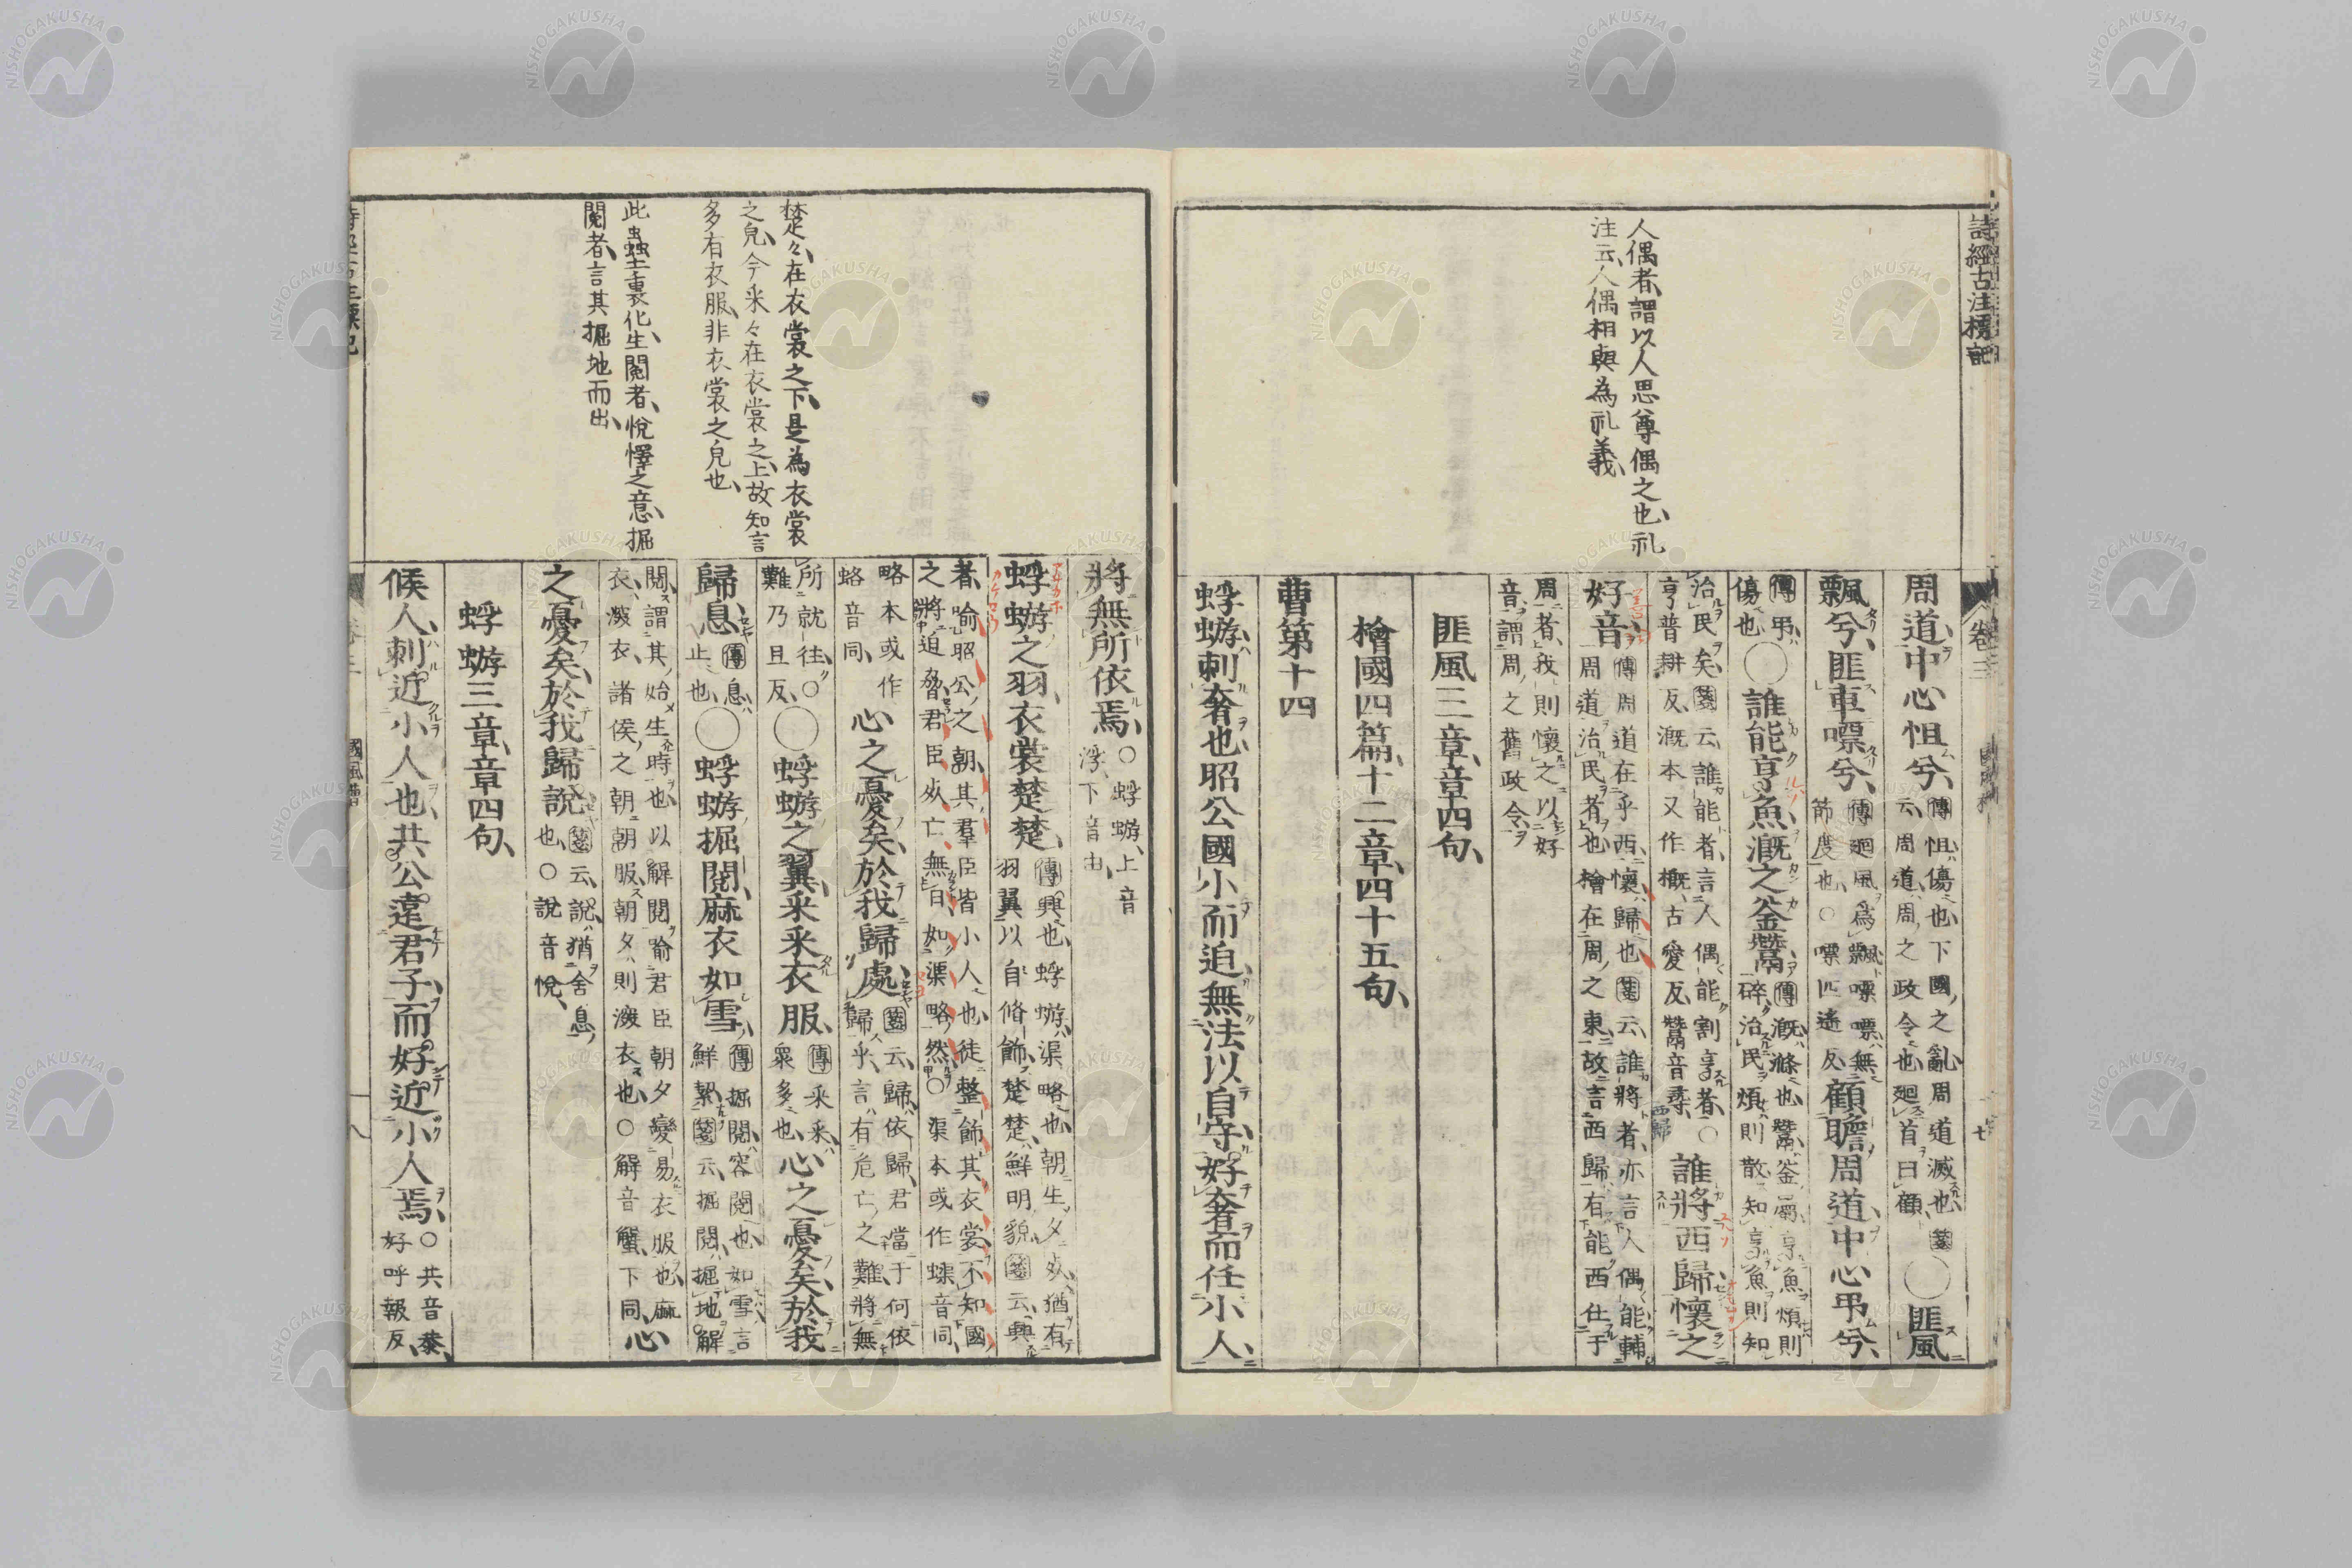 詩經古注標記
卷三
國風檜
十七
人偶者、謂以人思尊偶之也、礼
注云、人偶相與為礼義、
周道、中心怛兮、傳怛、傷也、下國之亂周道滅也、箋
云、周道、周之政令也、廻首曰顧、〇匪風
飄兮、匪車嘌兮、傳廻風爲飄、嘌嘌、無
節度也、〇嘌匹遙反、顧瞻周道、中心弔兮、
傳弔、
傷也、〇誰能亨魚、漑之釜鬵、傳漑、滌也、鬵、釜屬、亨魚煩則
碎、治民煩則散、知亨魚則知
治民矣、箋云、誰能者、言人偶能割亨者、〇
亨普耕反、漑本又作摡、古愛反、鬵音尋、
誰將西歸、懷之
西歸
好音、傳周道在乎西、懷、歸也、箋云、誰將者、亦言人偶能輔
周道治民者也、檜在周之東、故言西歸、有能西仕于
周者、我則懷之以好
音、謂周之舊政令、
匪風三章、章四句、
檜國四篇、十二章、四十五句、
曹第十四
蜉蝣、刺奢也、昭公國小而迫、無法以自守、好奢而任小人、
將無所依焉、〇蜉蝣、上音
浮、下音由、
蜉蝣之羽、衣裳楚楚、傳興也、蜉蝣、渠略也、朝生夕死、猶有
羽翼以自脩飾、楚楚、鮮明貌、箋云、興
者、喻昭公之朝、其羣臣皆小人也、徒整飾其衣裳、不知國
之將迫脅、君臣死亡無日、如渠略然、〇渠本或作蟝、音同、
略本或作
蛒、音同、
心之憂矣、於我歸處、箋云、歸、依歸、君當于何依
歸乎、言有危亡之難、將無
所就往、〇
難乃旦反、
〇蜉蝣之翼、采采衣服、傳采采、
衆多也、心之憂矣、於我
歸息、傳息、
止也、〇蜉蝣掘閱、麻衣如雪、傳掘閱、容閱也、如雪、言
鮮絜、箋云、掘閱、掘地解
閱、謂其始生時也、以解閱喻君臣朝夕變易衣服也、麻
衣、深衣、諸侯之朝朝服、朝夕則深衣也、〇解音蟹、下同、心
之憂矣、於我歸說、箋云、說、猶舍息
也、〇說音悅、
蜉蝣三章、章四句、
候人、刺近小人也、共公遠君子而好近小人焉、〇共音恭、
好呼報反、
楚々、在衣裳之下、是為衣裳
之皃、今采々在衣裳之上、故知言
多有衣服、非衣裳之皃也、
此蟲土裏化生、閱者、悅懌之意、掘
閱者、言其掘地而出、
國風曹
十八